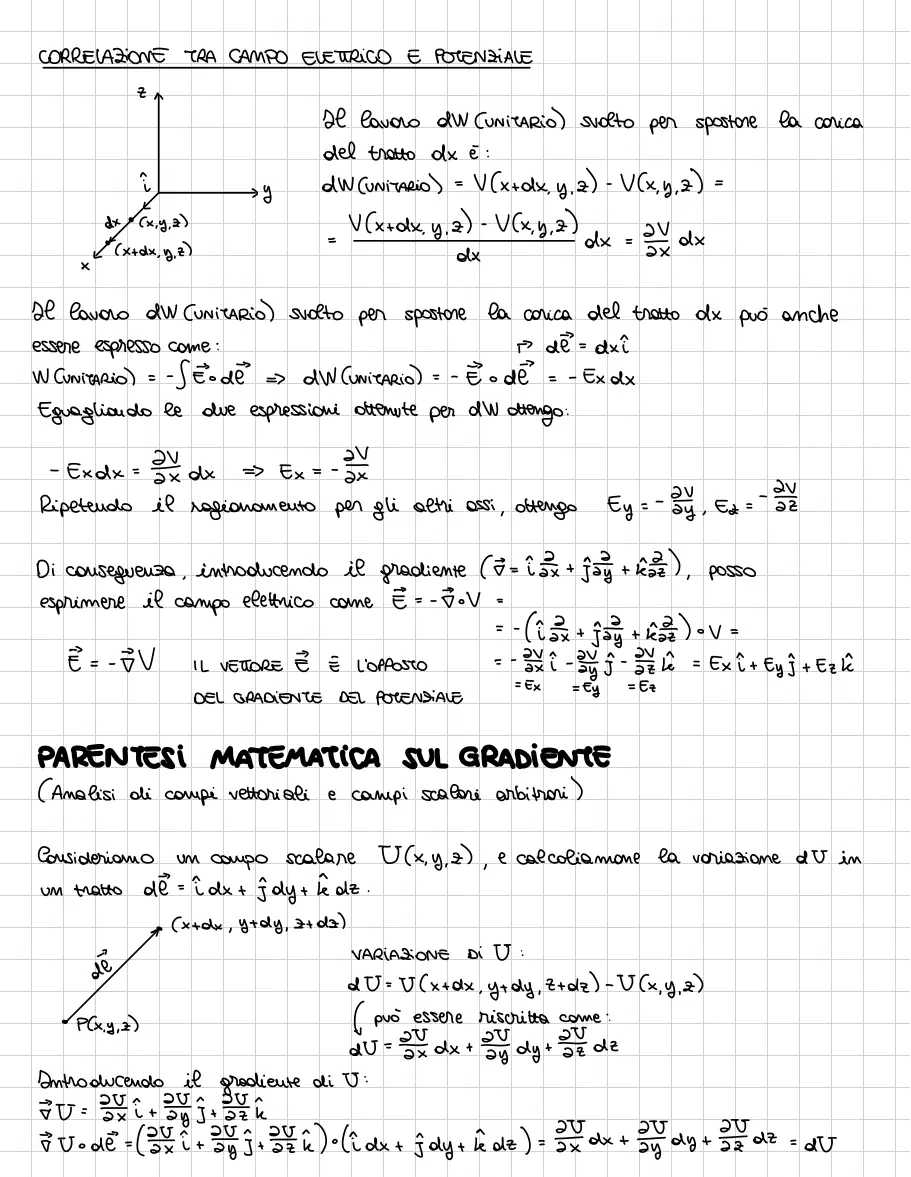 CORRELAZIONE TRA CAMPO ELETTRICO E POTENZIALE
z
Il lavoro dW (UNITARIO) svolto per spostare la carica
del tratto dx è:
î
y
dW (UNITARIO) = V(x+dx, y, z) - V(x, y, z) =
dx (x, y, z)
= (V(x+dx, y, z) - V(x, y, z))/dx dx = ∂V/∂x dx
(x+dx, y, z)
x
Il lavoro dW (UNITARIO) svolto per spostare la carica del tratto dx può anche
essere espresso come: ↱ dℓ⃗ = dx î
W (UNITARIO) = -∫E⃗∘dℓ⃗ => dW (UNITARIO) = -E⃗∘dℓ⃗ = -Ex dx
Eguagliando le due espressioni ottenute per dW ottengo:
-Ex dx = ∂V/∂x dx => Ex = -∂V/∂x
Ripetendo il ragionamento per gli altri assi, ottengo Ey = -∂V/∂y, Ez = -∂V/∂z
Di conseguenza, introducendo il gradiente (∇⃗ = î ∂/∂x + ĵ ∂/∂y + k̂ ∂/∂z), posso
esprimere il campo elettrico come E⃗ = -∇⃗∘V =
= -(î ∂/∂x + ĵ ∂/∂y + k̂ ∂/∂z)∘V =
E⃗ = -∇⃗V IL VETTORE E⃗ È L'OPPOSTO
DEL GRADIENTE DEL POTENZIALE
= -∂V/∂x î - ∂V/∂y ĵ - ∂V/∂z k̂ = Ex î + Ey ĵ + Ez k̂
=Ex =Ey =Ez
PARENTESI MATEMATICA SUL GRADIENTE
(Analisi di campi vettoriali e campi scalari arbitrari)
Consideriamo un campo scalare U(x, y, z), e calcoliamone la variazione dU in
un tratto dℓ⃗ = î dx + ĵ dy + k̂ dz.
(x+dx, y+dy, z+dz)
dℓ⃗
P(x, y, z)
VARIAZIONE DI U:
dU = U(x+dx, y+dy, z+dz) - U(x, y, z)
può essere riscritta come:
dU = ∂U/∂x dx + ∂U/∂y dy + ∂U/∂z dz
Introducendo il gradiente di U:
∇⃗U = ∂U/∂x î + ∂U/∂y ĵ + ∂U/∂z k̂
∇⃗U∘dℓ⃗ = (∂U/∂x î + ∂U/∂y ĵ + ∂U/∂z k̂)∘(î dx + ĵ dy + k̂ dz) = ∂U/∂x dx + ∂U/∂y dy + ∂U/∂z dz = dU